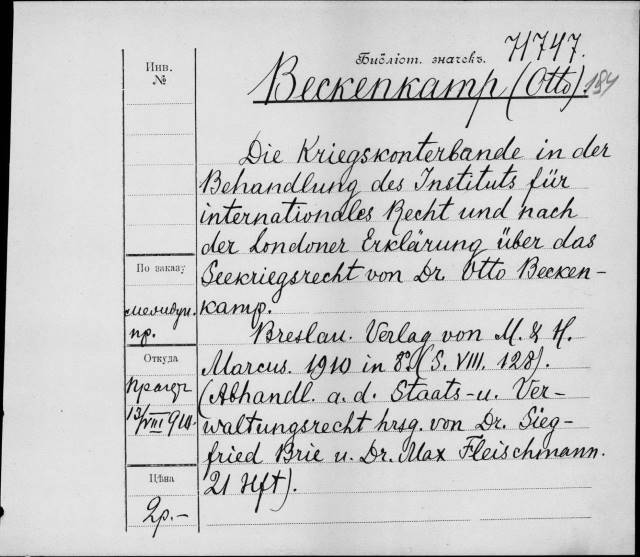 Инв.
№
Библіот. значекъ.
71747.
Beckenkamp (Otto).
Die Kriegskonterbande in der
Behandlung des Instituts für
internationales Recht und nach
der Londoner Erklärung über das
Seekriegsrecht von Dr. Otto Becken-
kamp.
Breslau. Verlag von M. & H.
Marcus. 1910 in 8º (S. VIII. 128).
(Abhandl. a. d. Staats- u. Ver-
waltungsrecht hrsg. von Dr. Sieg-
fried Brie u. Dr. Max Fleischmann.
21 Hft).
По заказу
пр.
Откуда
13/VIII 910.
Цѣна
2р.-